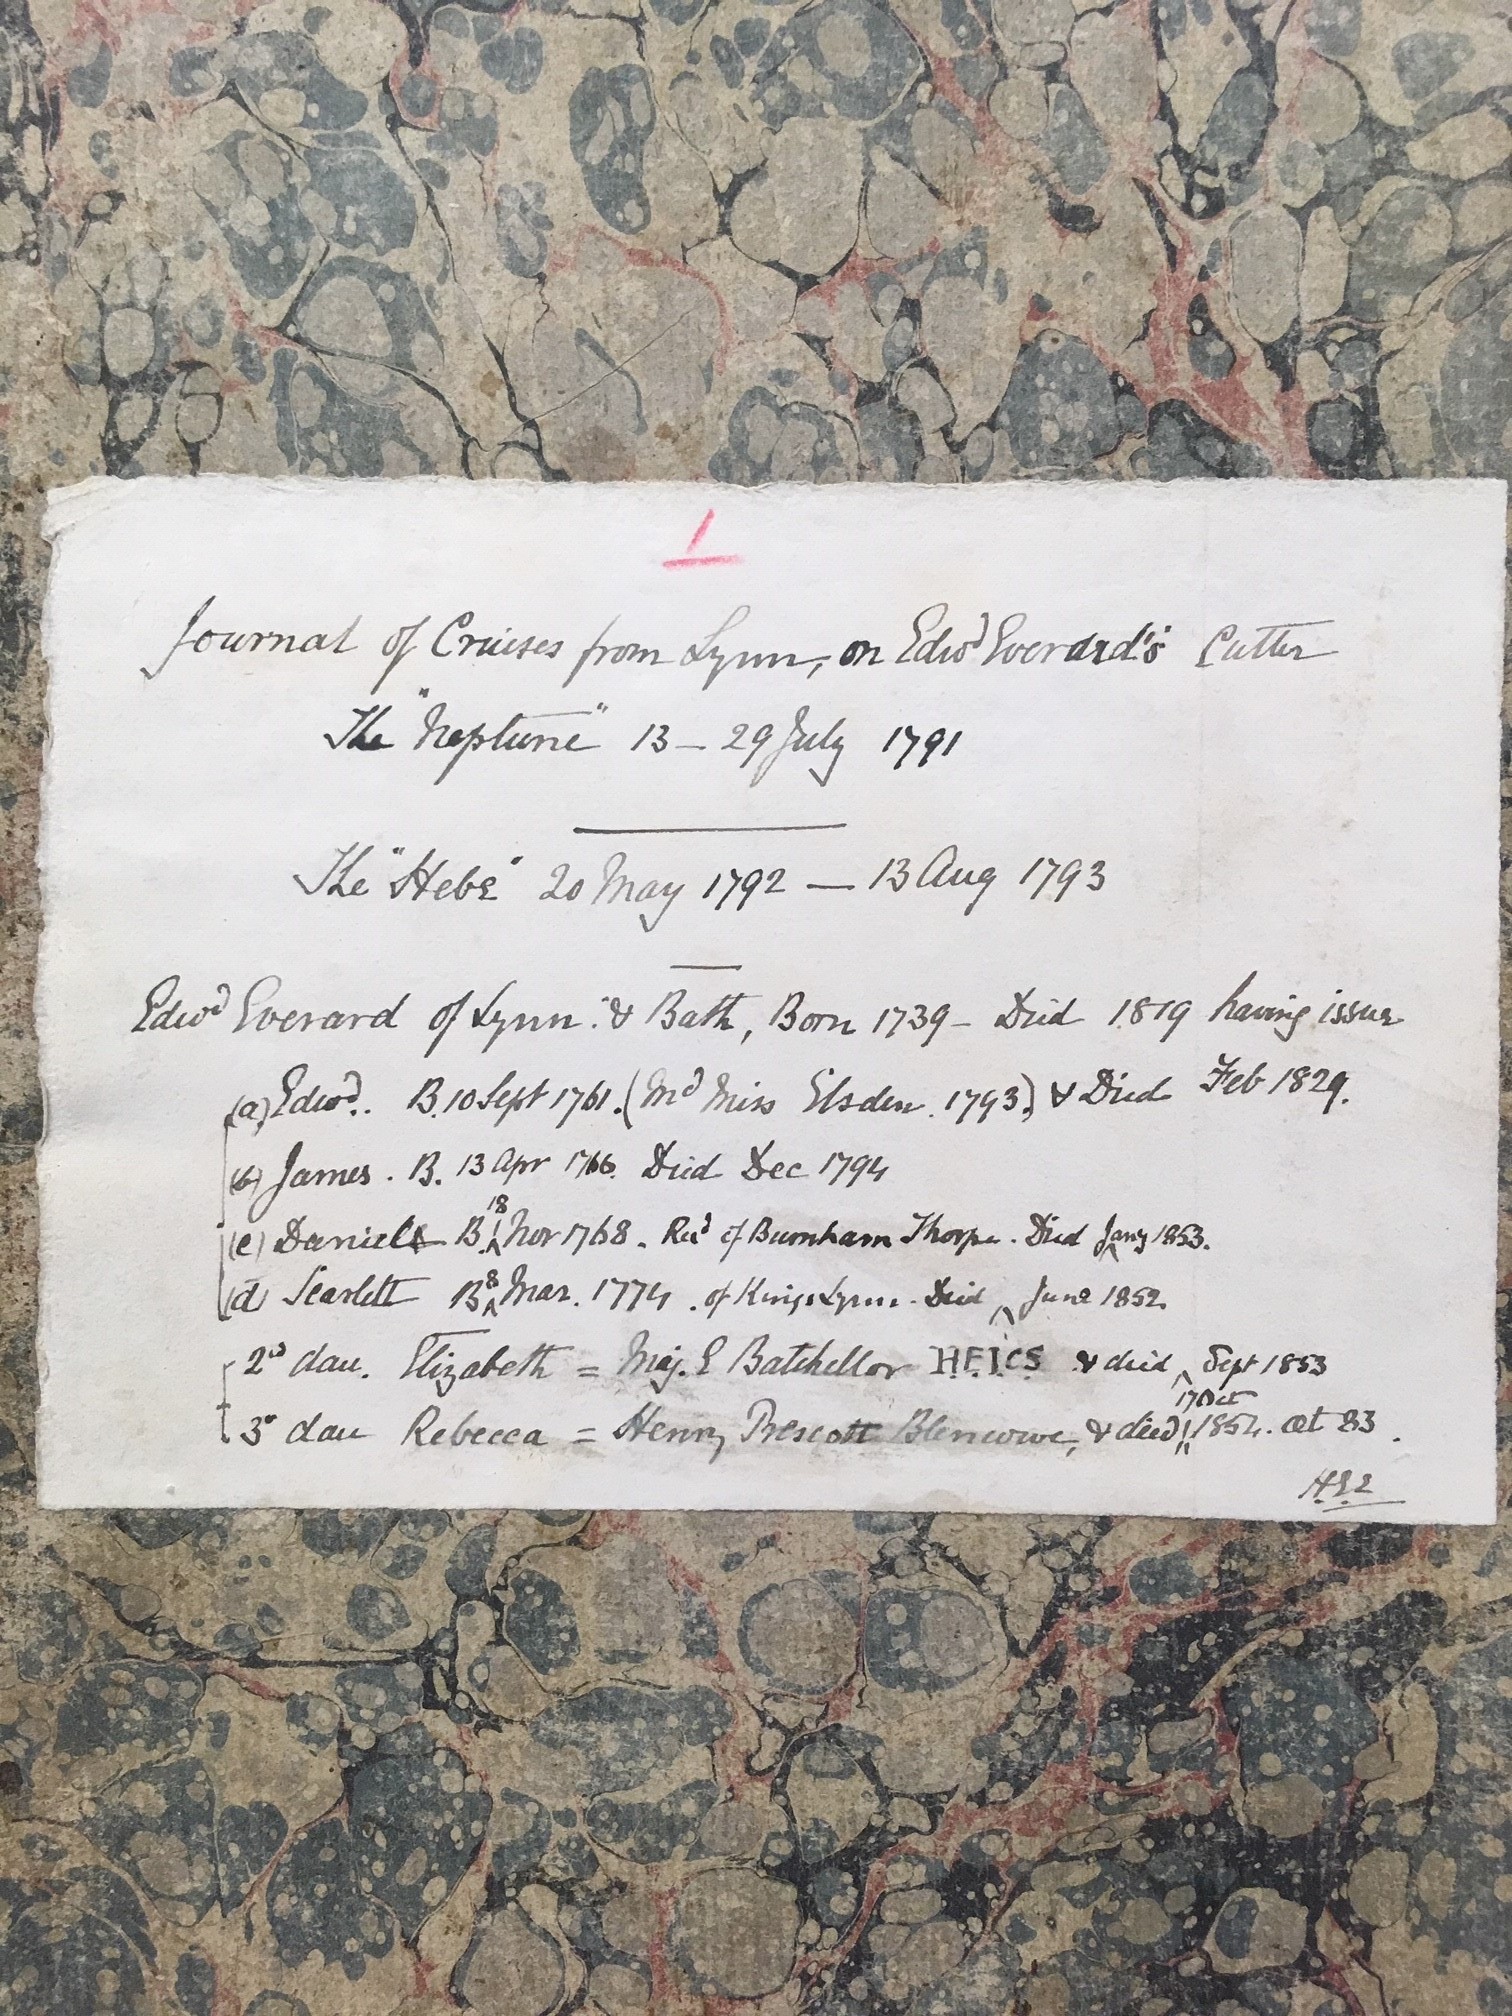 1
Journal of Cruises from Lynn, on Edwd Everard's Cutter
The "Neptune" 13 – 29 July 1791
The "Hebe" 20 May 1792 — 13 Aug 1793
Edwd Everard of Lynn & Bath, Born 1739 – Died 1819 having issue
(a) Edwd. B. 10 Sept 1761. (Md Miss Elsden. 1793.) & Died Feb 1829.
(b) James. B. 13 Apr 1766. Died Dec 1794
(c) Daniel B. 18 Nov 1768. Rec of Burnham Thorpe. Died Jany 1853.
(d) Scarlett B 8 Mar. 1774. of Kings Lynn. Died June 1852.
2d dau. Elizabeth = Maj. E Batchellor H.E.I.C.S & died Sept 1853
3d dau Rebecca = Henry Prescott Blencowe, & died 17 Oct 1854. aet 83.